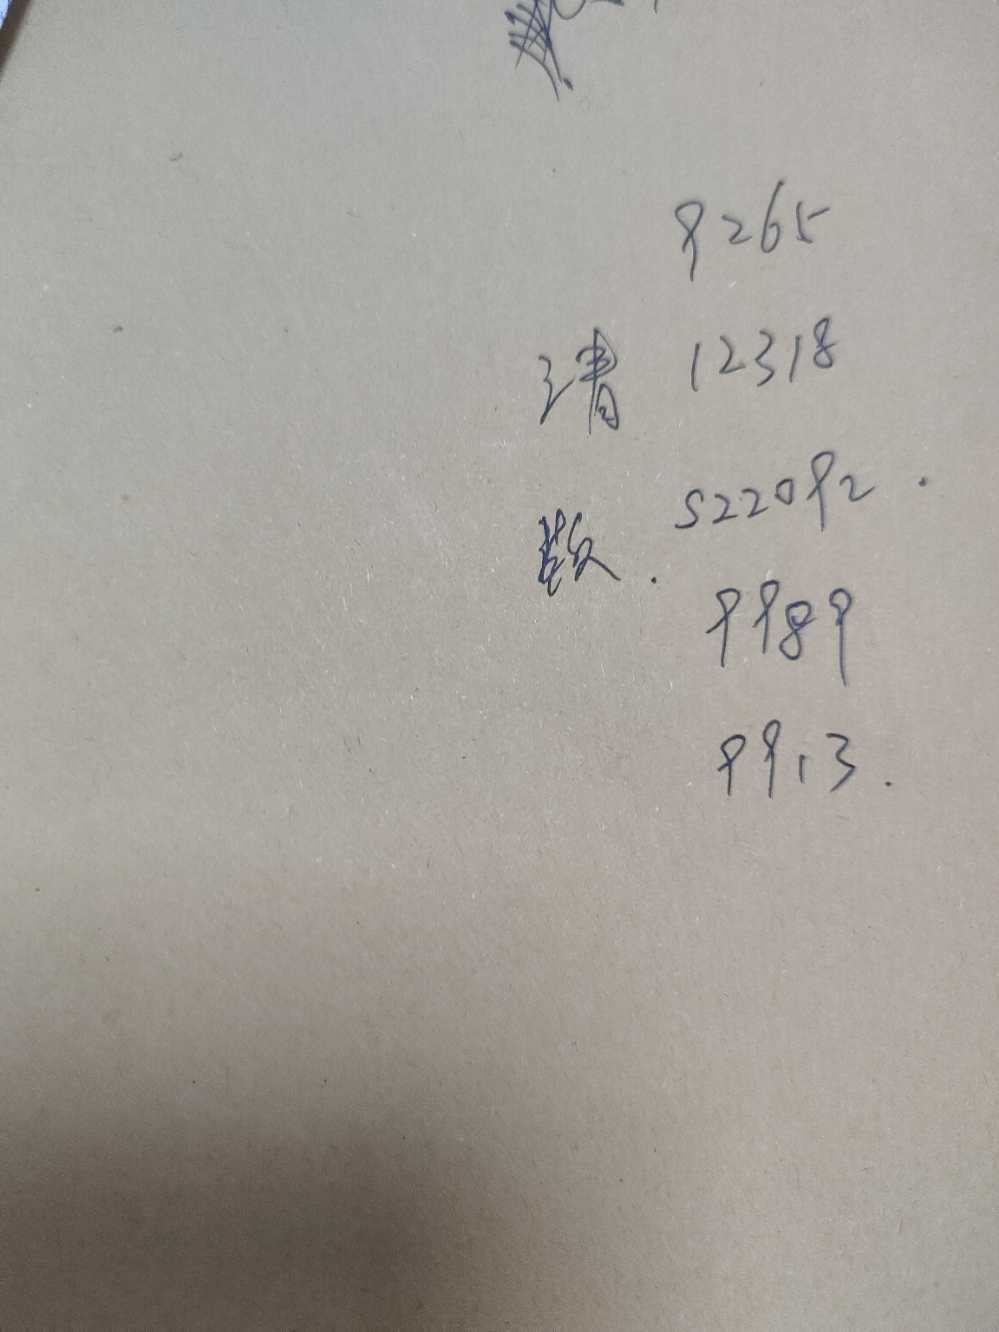 9265
清 12318
S22092.
数.
9989
9913.